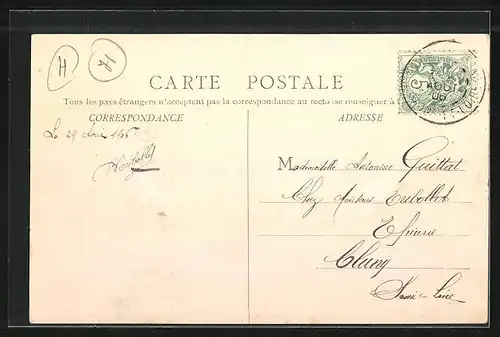 H
CARTE POSTALE
Tous les pays étrangers n'acceptent pas la correspondance au recto (se renseigner à
CORRESPONDANCE
ADRESSE
Le 29 1906
Mademoiselle Antonine Guittat
Chez Monsieur Eubollet
Cluny
Saône-Loire